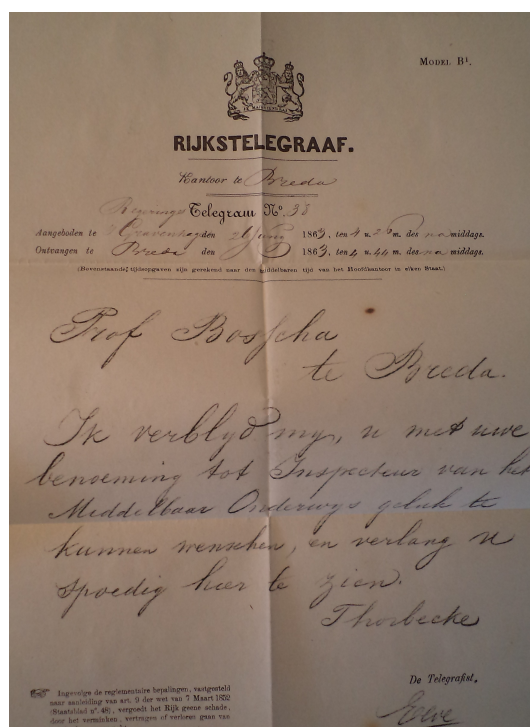 MODEL B¹.
RIJKSTELEGRAAF.
Kantoor te Breda
Regerings Telegram Nº. 38
Aangeboden te 's Gravenhage den 26 Junij 1863, ten 4 u. 26 m. des na middags.
Ontvangen te Breda den 1863, ten 4 u. 44 m. des na middags.
(Bovenstaande tijdsopgaven zijn gerekend naar den middelbaren tijd van het Hoofdkantoor in elken Staat.)
Prof Bosscha
te Breda.
Ik verblyd my, u met uwe
benoeming tot Inspecteur van het
Middelbaar Onderwys geluk te
kunnen wenschen, en verlang u
spoedig hier te zien.
Thorbecke
De Telegrafist,
Ingevolge de reglementaire bepalingen, vastgesteld
naar aanleiding van art. 9 der wet van 7 Maart 1852
(Staatsblad nº. 48), vergoedt het Rijk geene schade,
door het verminken, vertragen of verloren gaan van